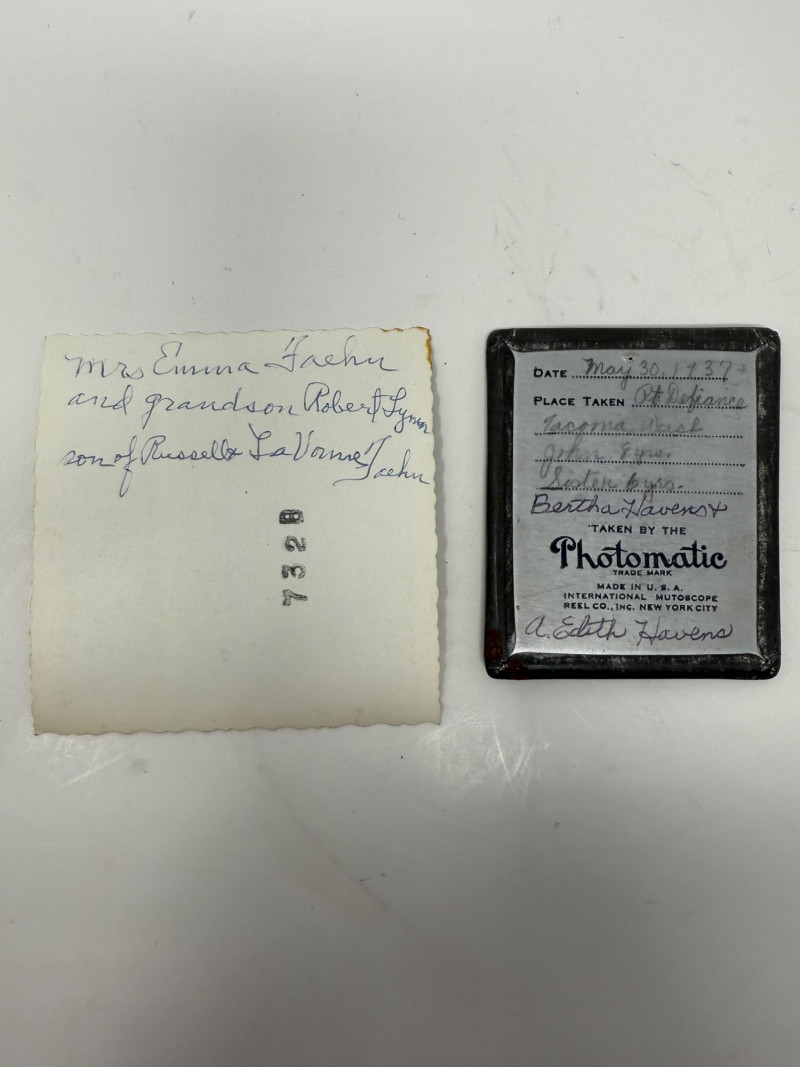 Mrs Emma Faehn
and grandson Robert Lynn
son of Russell & LaVonne Faehn
7328
DATE May 30, 1937
PLACE TAKEN Pt. Defiance
Tacoma Wash
John 8 yrs.
Sister 6 yrs.
Bertha Havens &
TAKEN BY THE
Photomatic
TRADE MARK
MADE IN U. S. A.
INTERNATIONAL MUTOSCOPE
REEL CO., INC. NEW YORK CITY
A. Edith Havens